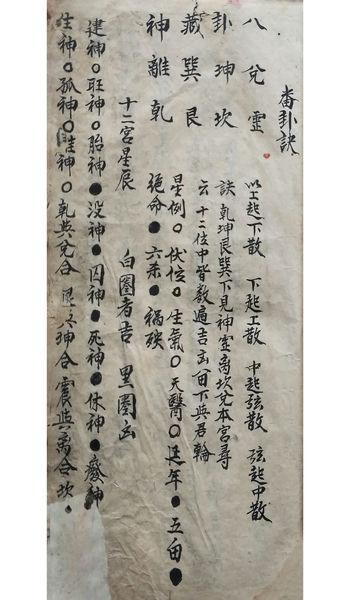 番卦訣
八兌靈　以工起下散　下起工散　中起弦散　弦起中散
卦坤坎　訣乾坤艮巽下見神靈离坎兌本宮尋
藏巽艮　云十二位中皆数遍吉凶下與君輪
神離乾　星例○伏位○生氣○天醫○延年●五●
絕命●六杀●禍殃
十二宮星辰　白圈者吉　黑圈凶
建神○旺神○胎神●没神●囚神●死神●休神●廢神
生神○孤神○神○乾與兌合　坤合　震與离合坎